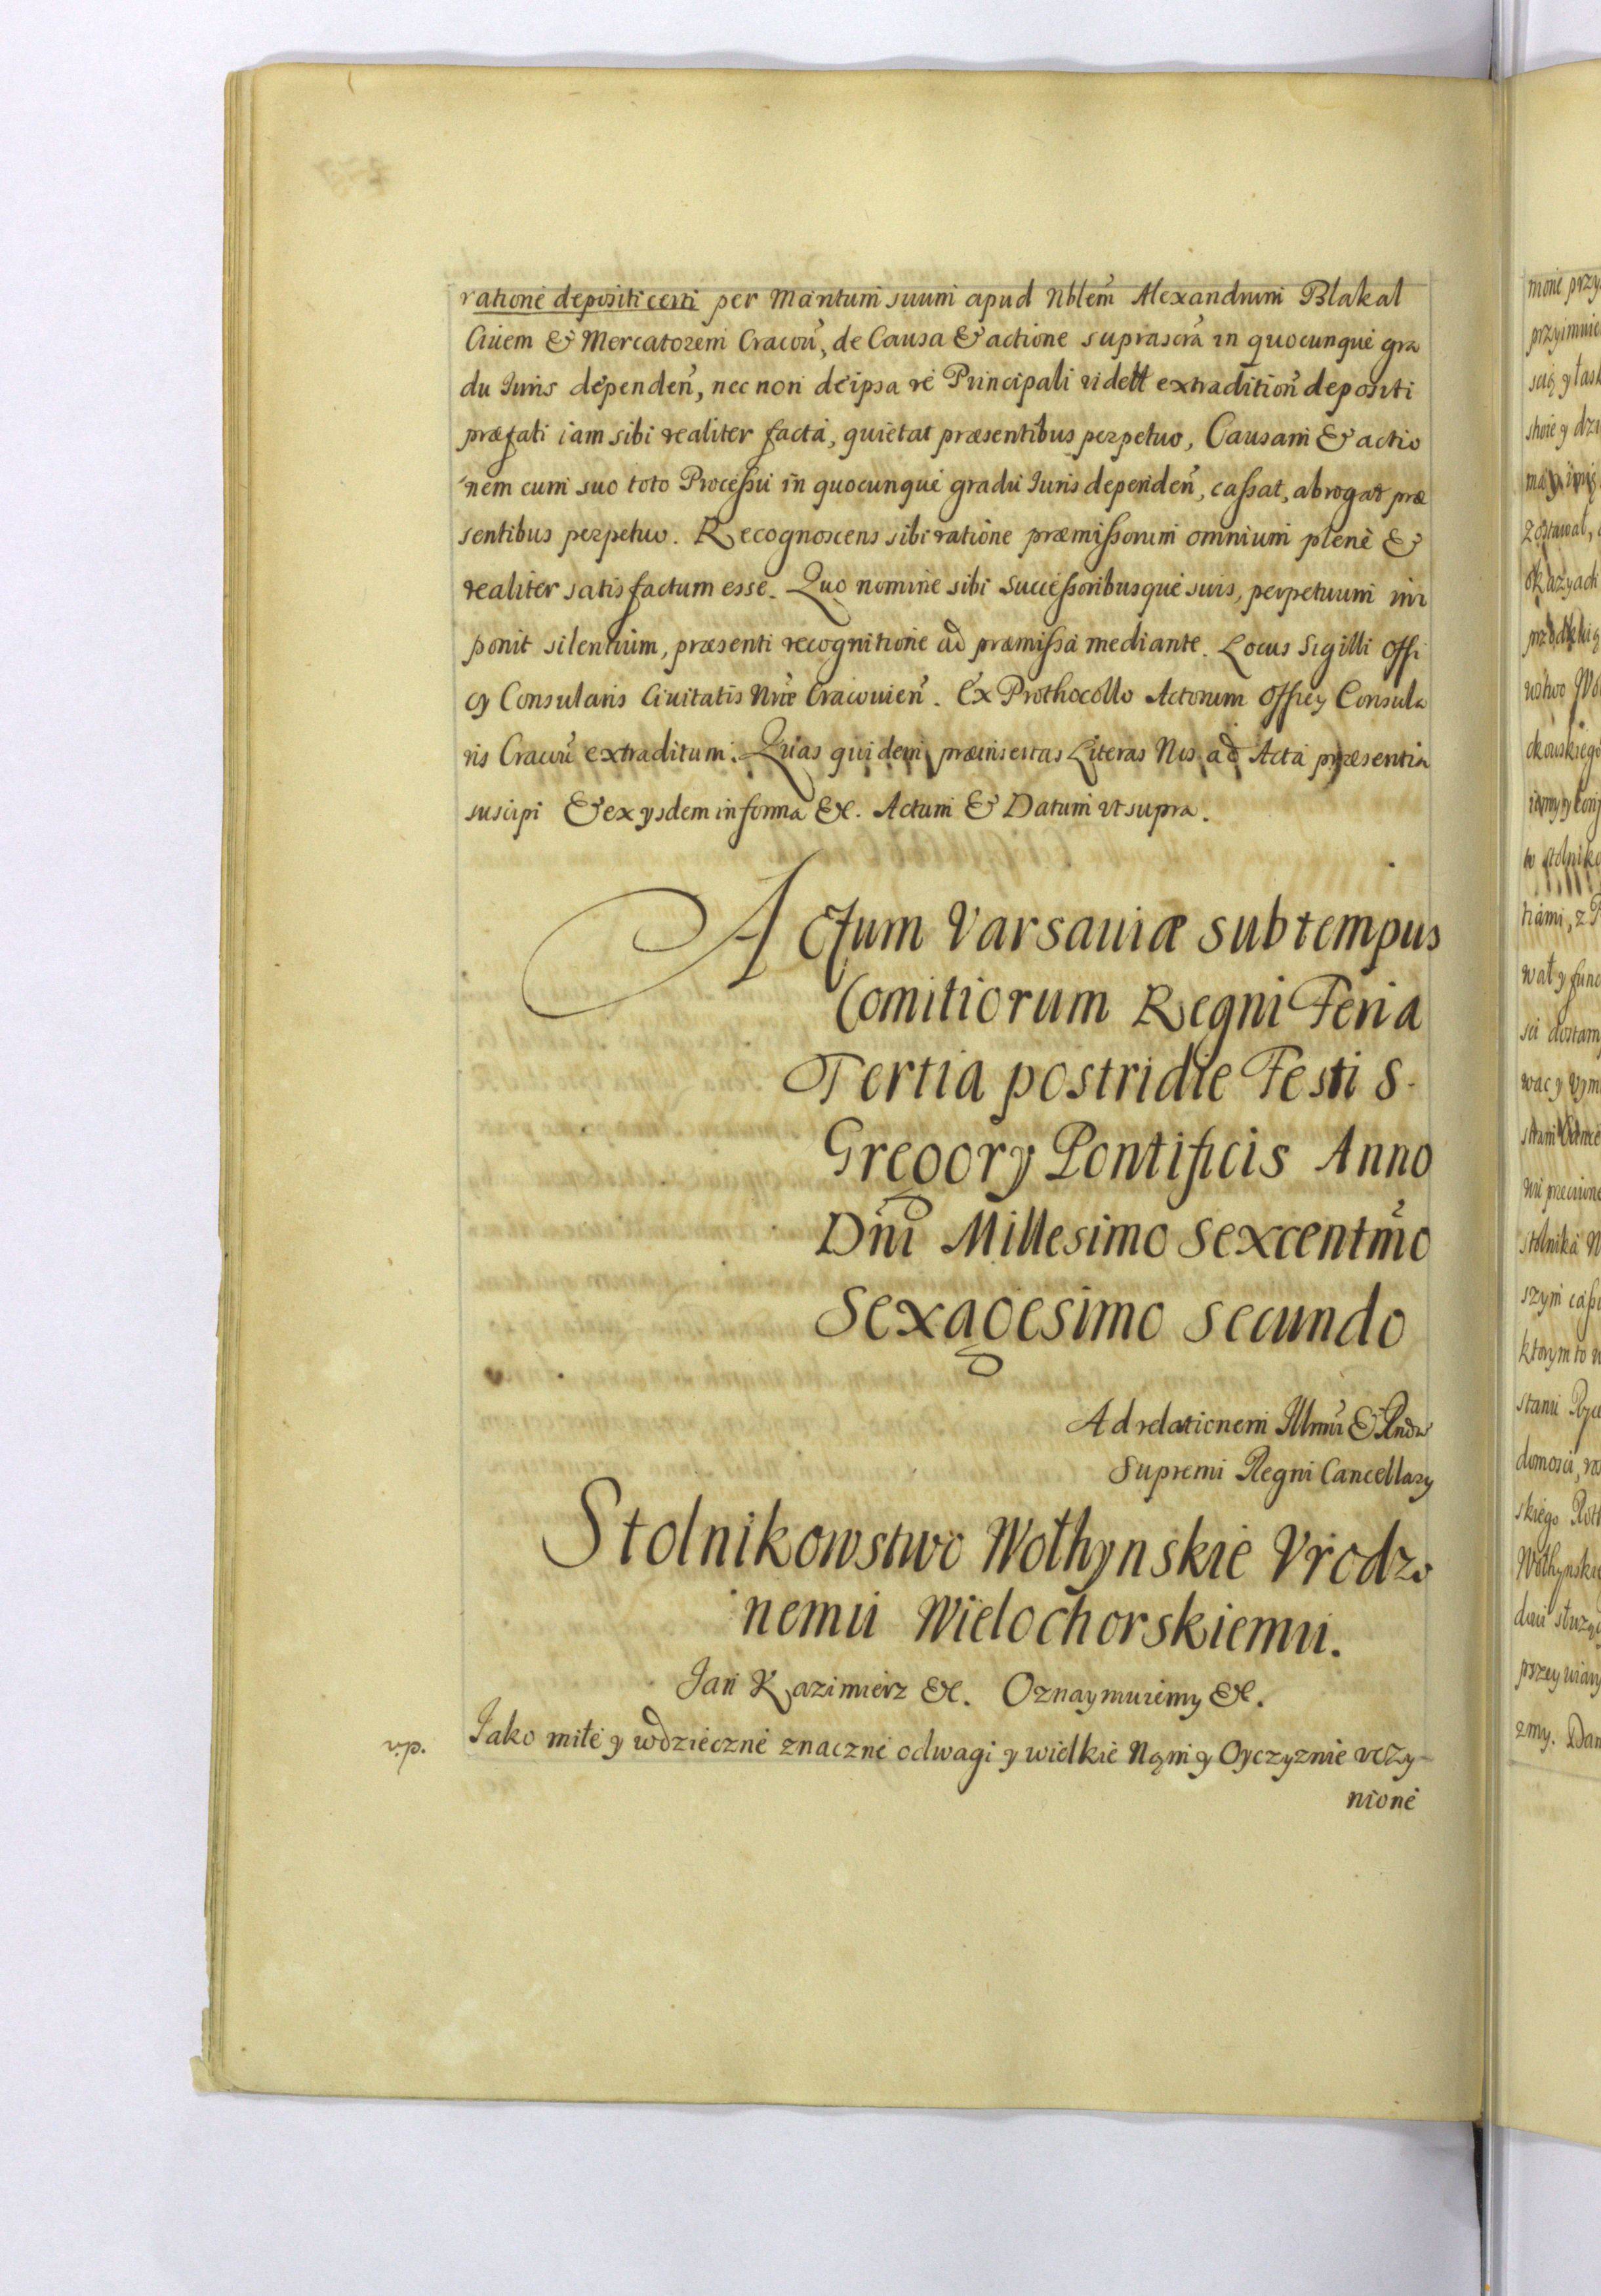 ratione depositi certi per Maritum suum apud Nblem Alexandrum Blakal
Ciuem & Mercatorem Cracou, de Causa & actione suprascra in quocunque gra
du Iuris dependen, nec non de ipsa re Principali vidett extradition depositi
præfati iam sibi realiter facta, quietat præsentibus perpetuo, Causam & actio
nem cum suo toto Processu in quocunque gradu Iuris dependen, cassat, abrogat præ
sentibus perpetuo. Recognoscens sibi ratione præmissorum omnium plene &
realiter satisfactum esse. Quo nomine sibi successoribusque suis, perpetuum im
ponit silentium, præsenti recognitione ad præmissa mediante. Locus Sigilli Offi
cy Consularis Ciuitatis Nræ Cracouien. Ex Prothocollo Actorum Officy Consula
ris Cracou extraditum. Quas quidem præinsertas Literas Nos ad Acta præsentia
suscipi & ex ysdem in forma &c. Actum & Datum vt supra.
Actum Varsauiæ sub tempus
Comitiorum Regni Feria
Tertia postridie Festi S.
Gregory Pontificis Anno
Dni Millesimo Sexcentmo
Sexagesimo Secundo
Ad relationem Illmi & Rndi
Supremi Regni Cancellary
Stolnikowstwo Wołhynskie Vrodzo
nemu Wielochorskiemu.
Jan Kazimierz &c. Oznaymuiemy &c.
Jako miłe y wdzieczne znaczne odwagi y wielkie Nąm y Oyczyznie vczy
nione